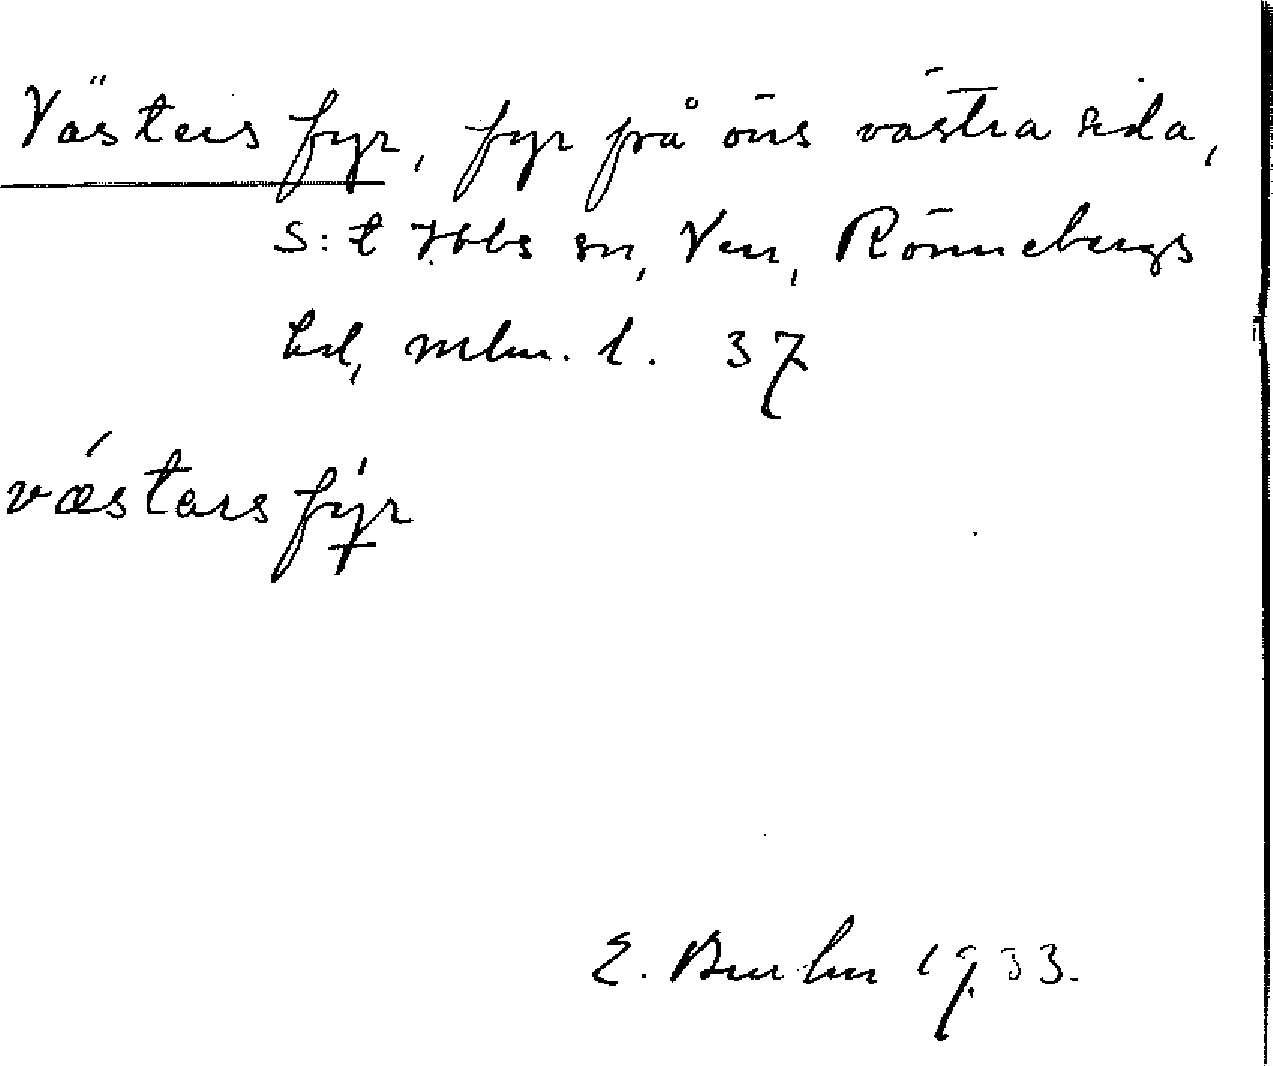 Västers fyr, fyr på öns västra sida,
S:t Ibbs sn, Ven, Rönnebergs
hd, mlm. l. 37
væstars fyr
E. 1933.